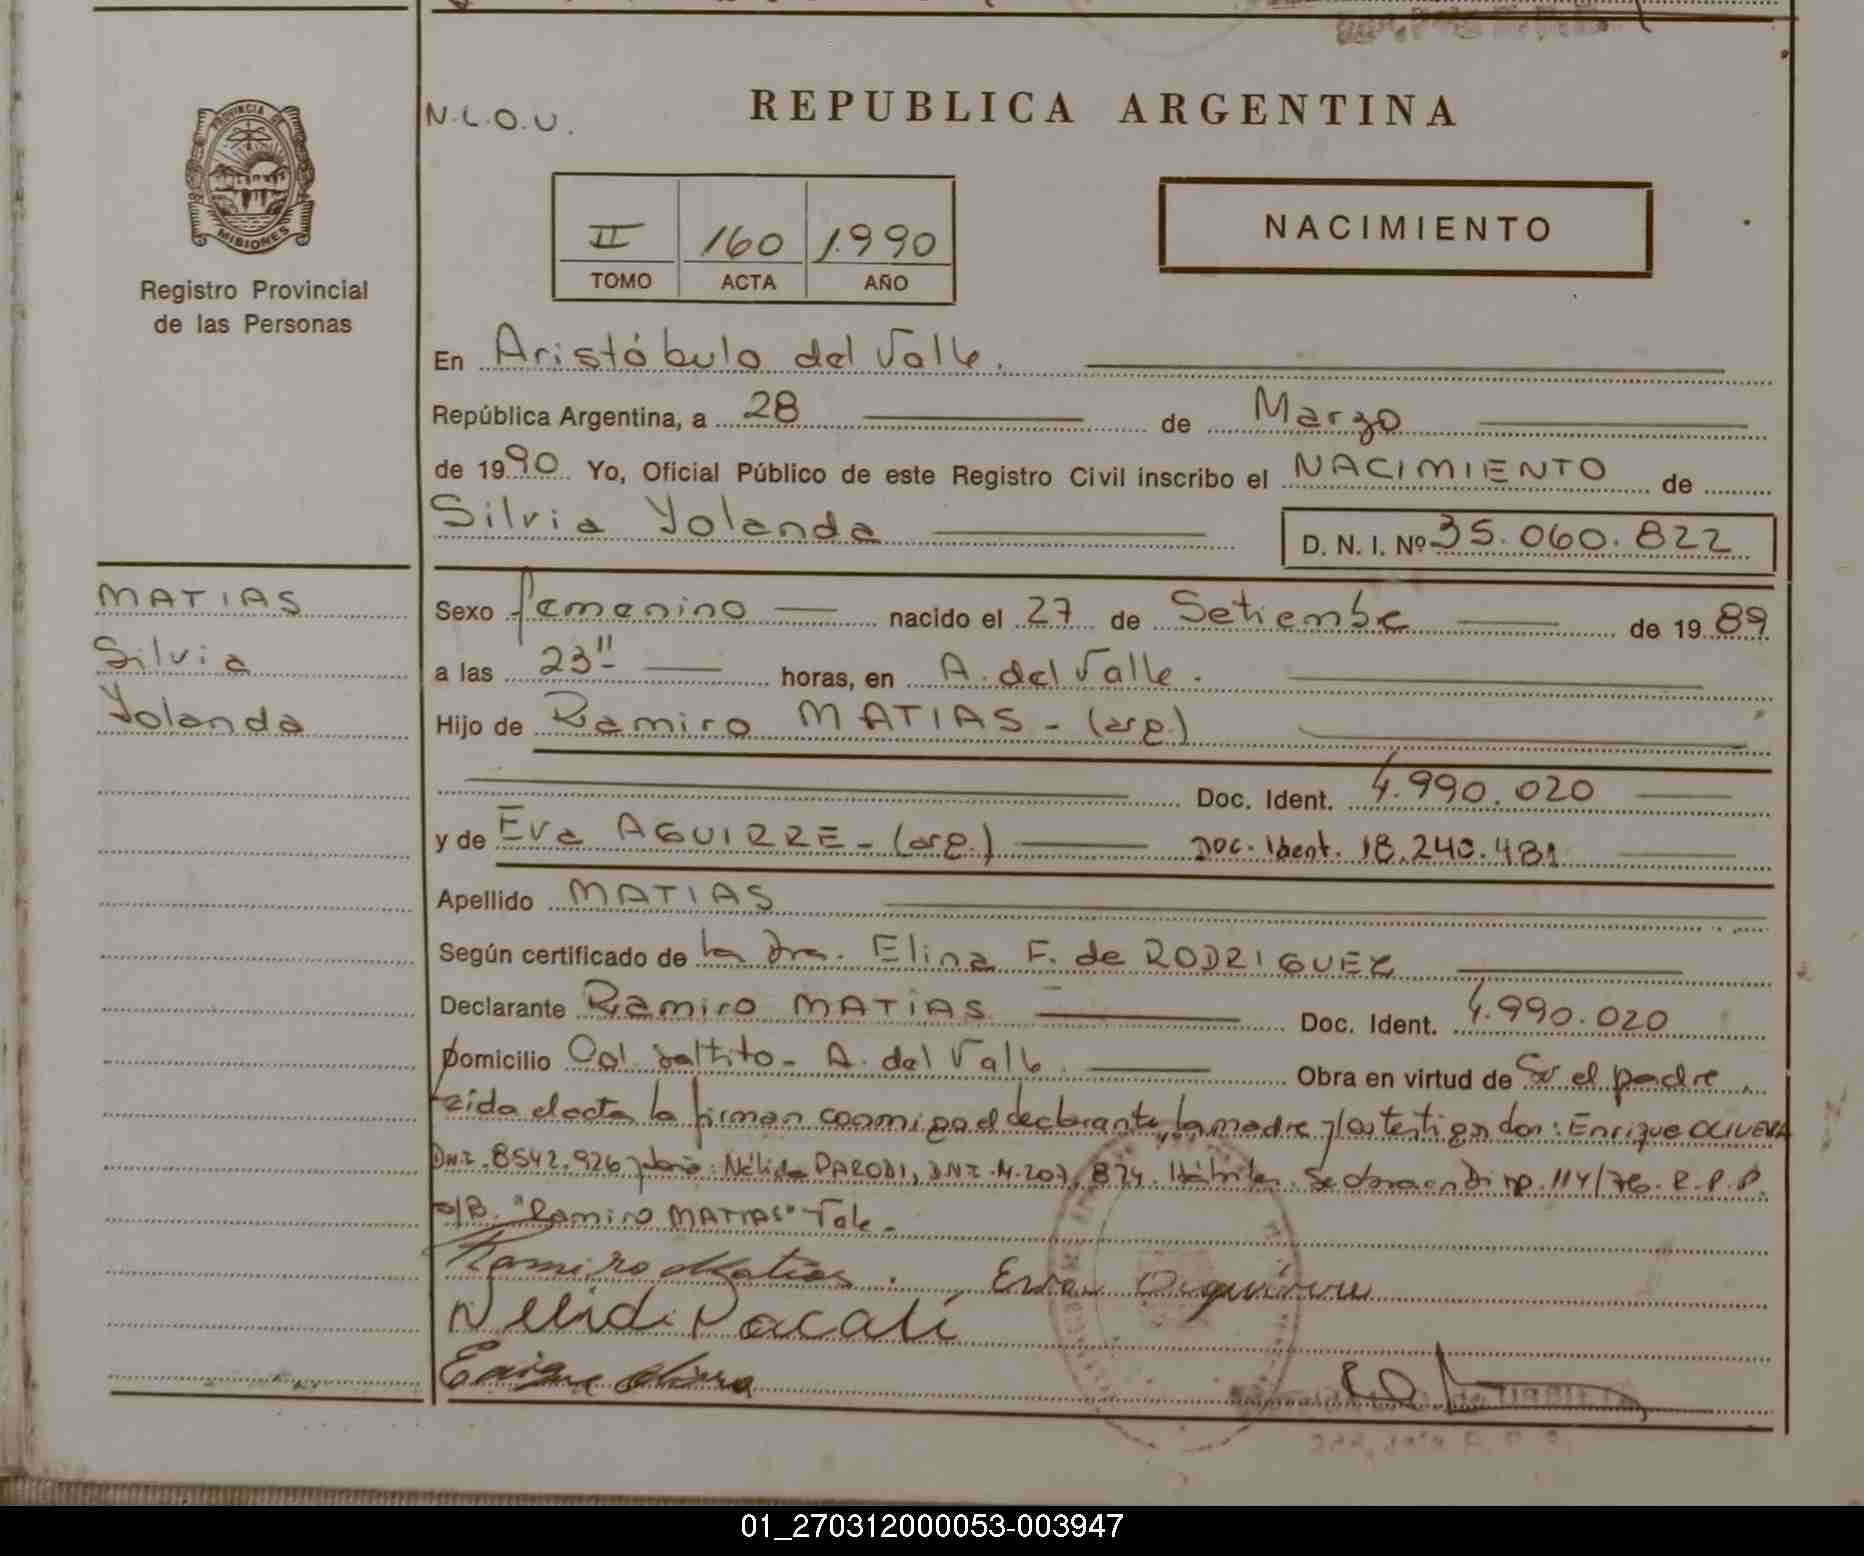 N.L.O.U.
REPUBLICA ARGENTINA
PROVINCIA DE
MISIONES
Registro Provincial
de las Personas
II 160 1.990
TOMO ACTA AÑO
NACIMIENTO
En Aristóbulo del Valle.
República Argentina, a 28 de Marzo
de 1990 Yo, Oficial Público de este Registro Civil inscribo el NACIMIENTO de
Silvia Yolanda
D. N. I. Nº 35.060.822
MATIAS
Silvia
Yolanda
Sexo femenino nacido el 27 de Setiembre de 1989
a las 23" horas, en A. del Valle.
Hijo de Ramiro MATIAS - (arg.)
Doc. Ident. 4.990.020
y de Eva AGUIRRE - (arg.) Doc. Ident. 18.240.481
Apellido MATIAS
Según certificado de la Dra. Elina F. de RODRIGUEZ
Declarante Ramiro MATIAS Doc. Ident. 4.990.020
Domicilio Col. Saltito - A. del Valle. Obra en virtud de Ser el padre.
Leida el acta la firman conmigo el declarante, la madre y los testigos don: Enrique OLIVERA
DNI. 8542.926 y doña: Nélida PARODI, DNI. 4.207.874. Hábiles. Se obra en Disp. 114/76. R.P.P.
"Ramiro MATIAS" Vale.
Ramiro Matias. Eva Aguirre
01_270312000053-003947